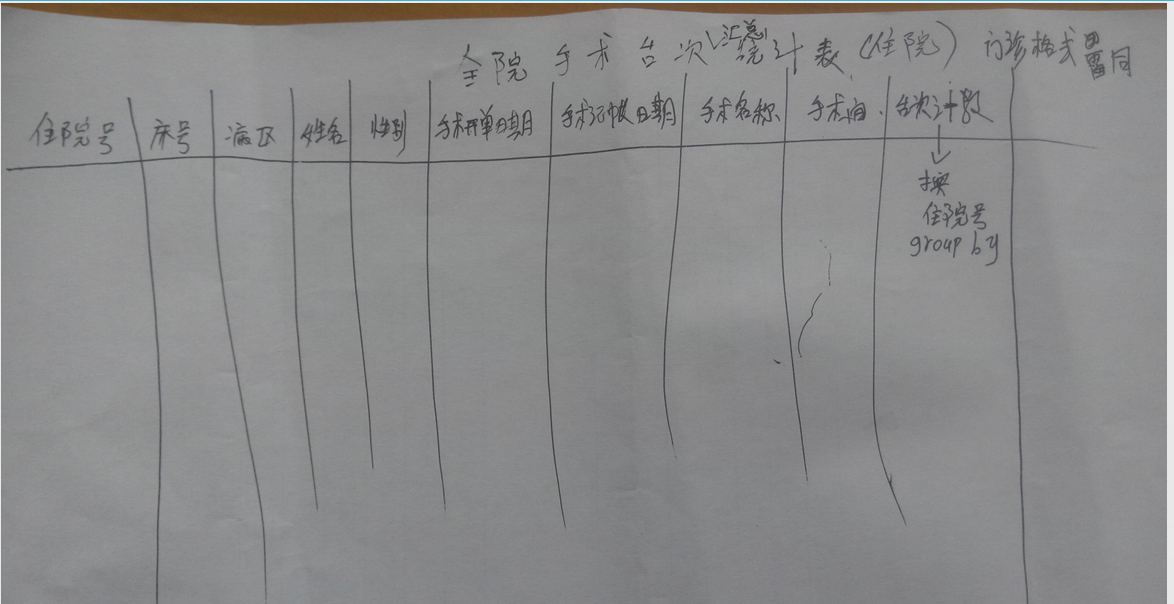 全院手术台次(汇总)统计表(住院) 门诊格式雷同
住院号 床号 病区 姓名 性别 手术开单日期 手术记帐日期 手术名称 手术间 台次计数
按
住院号
group by